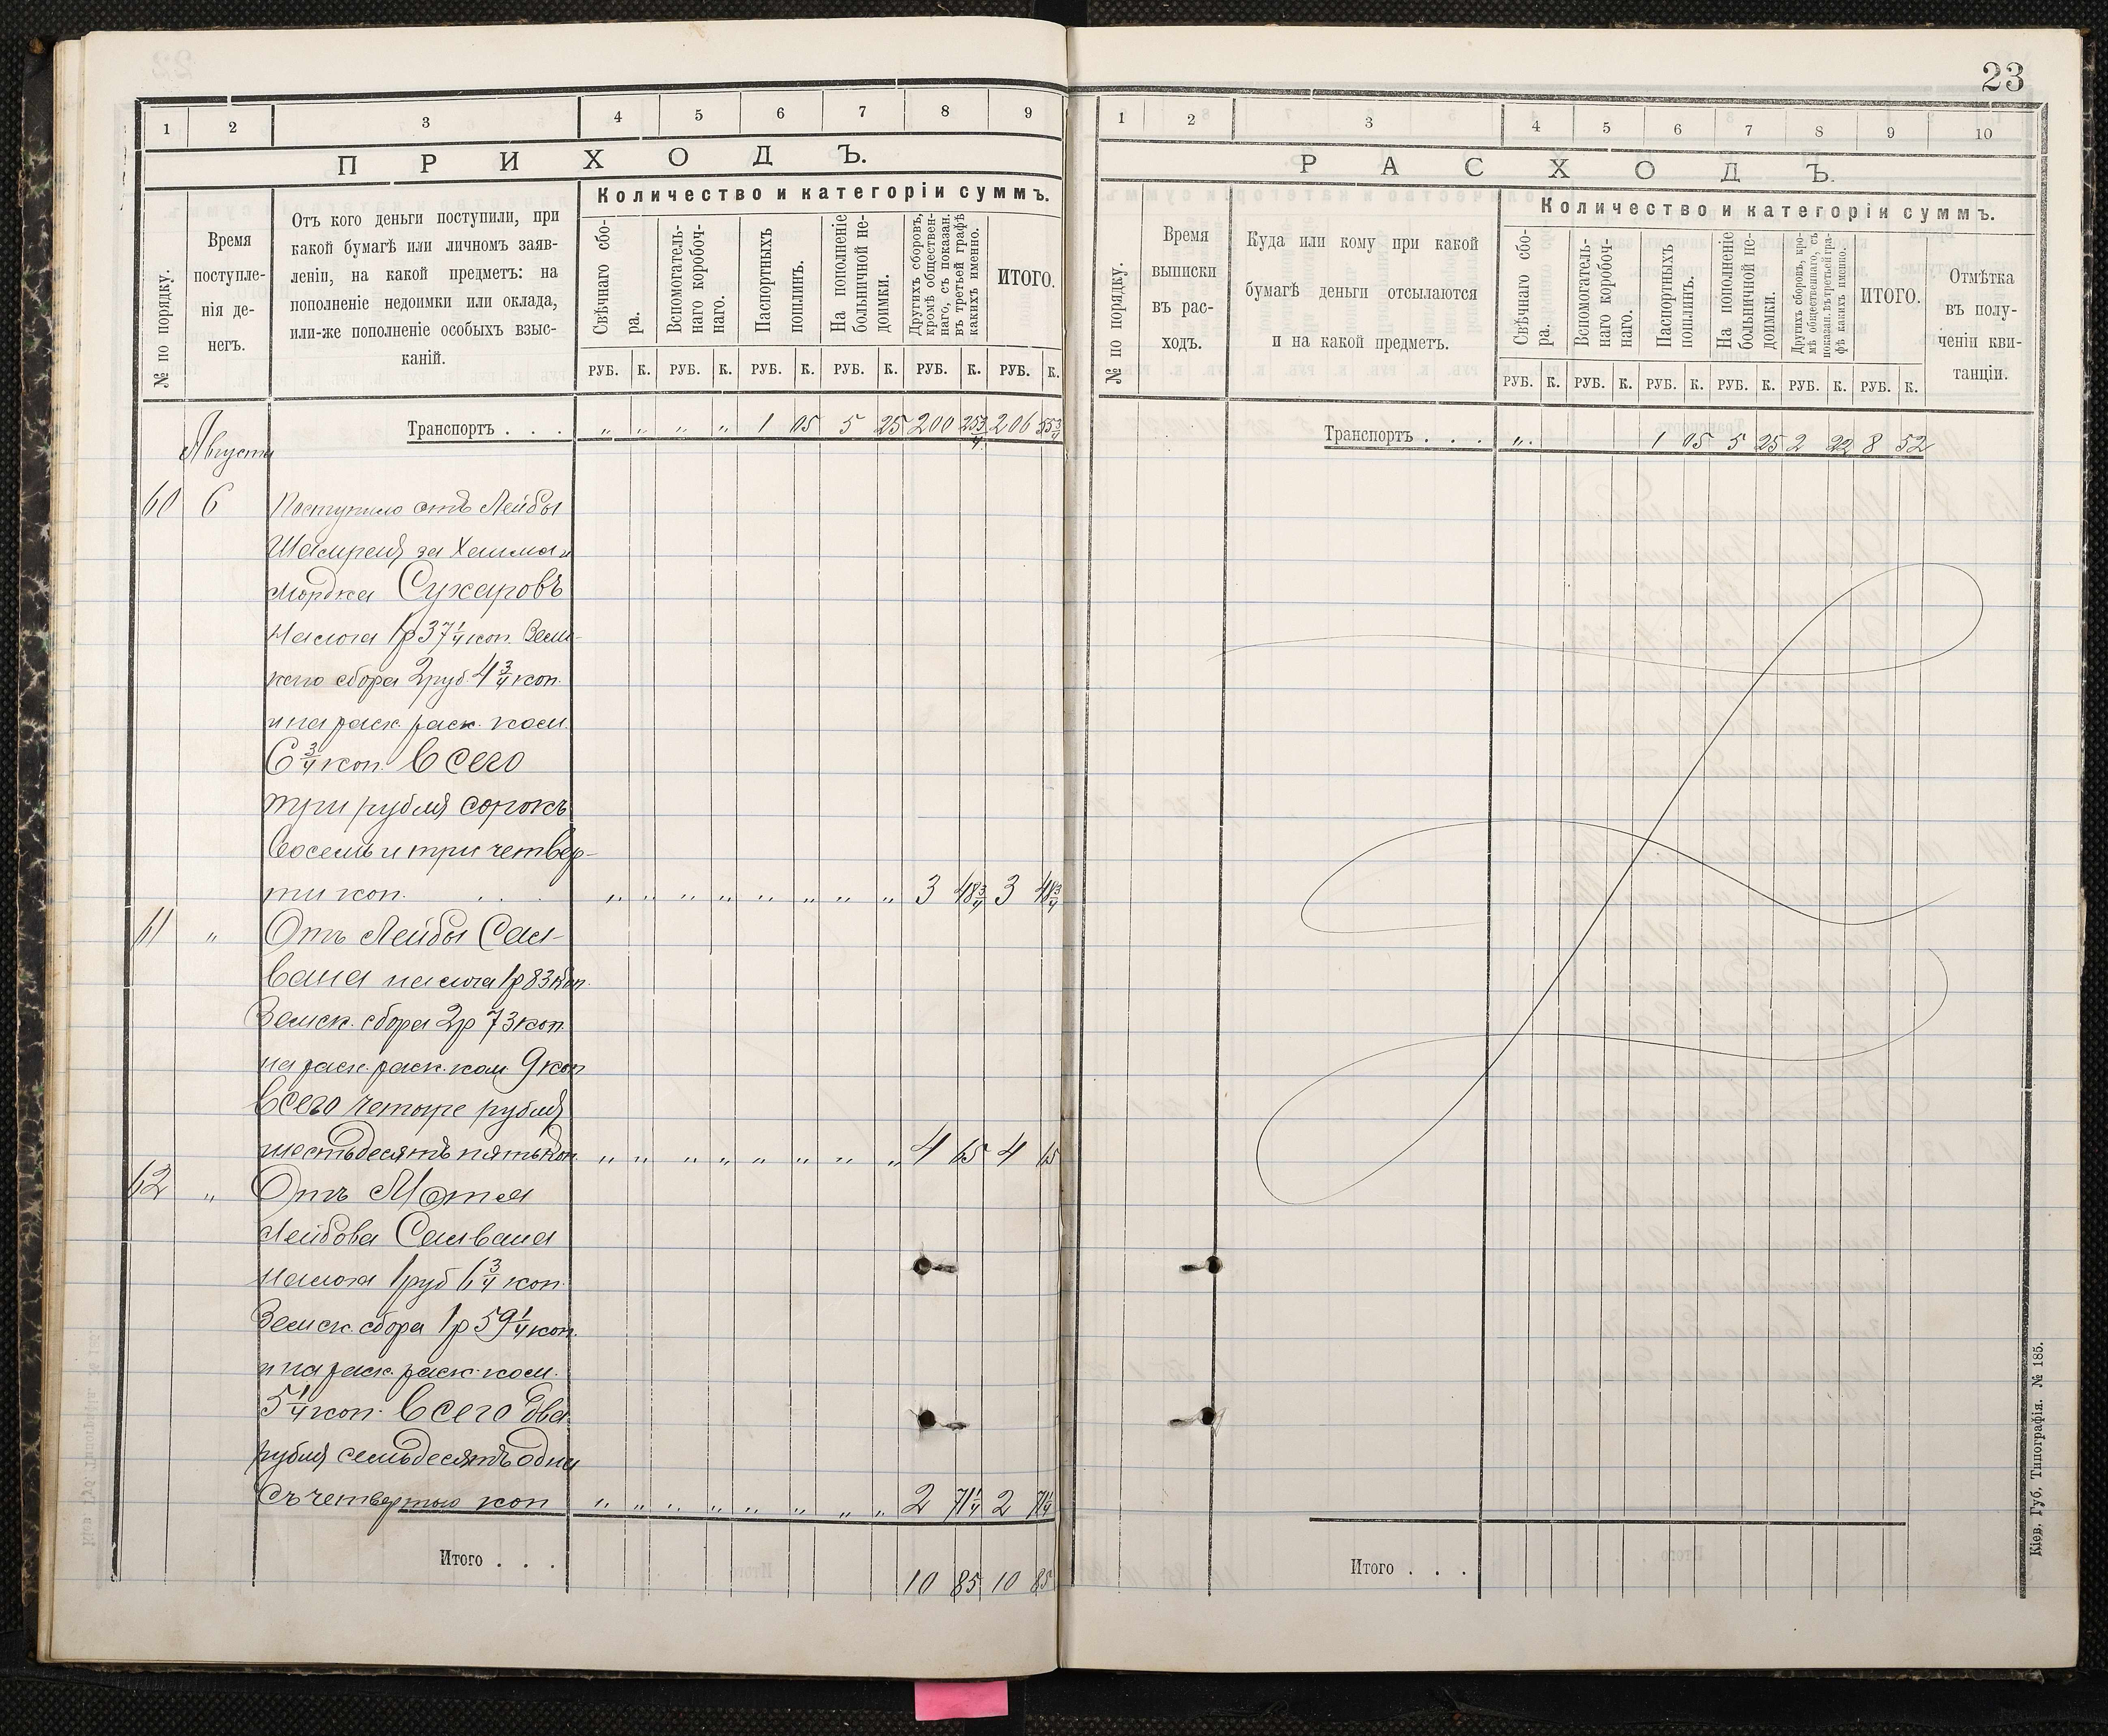 1 2 3 4 5 6 7 8 9
ПРИХОДЪ.
№ по порядку.
Время
поступле-
нія де-
негъ.
Отъ кого деньги поступили, при
какой бумагѣ или личномъ заяв-
леніи, на какой предметъ: на
пополненіе недоимки или оклада,
или-же пополненіе особыхъ взыс-
каній.
Количество и категоріи суммъ.
Свѣчнаго сбо-
ра.
Вспомогатель-
наго коробоч-
наго.
Паспортныхъ
пошлинъ.
На пополненіе
больничной не-
доимки.
Другихъ сборовъ,
кромѣ обществен-
наго, съ показан.
въ третьей графѣ
какихъ именно.
ИТОГО.
РУБ. К. РУБ. К. РУБ. К. РУБ. К. РУБ. К. РУБ. К.
Транспортъ . . . „ „ „ „ 1 05 5 25 200 25 3/4 206 55 3/4
Августа
60 6 Поступило отъ Лейбы
за
Мордка Сухаровъ
налога 1р 37 1/4 коп. Земс-
каго сбора 2 руб. 4 3/4 коп.
и на раск. раск. ком.
6 3/4 коп. Всего
три рубля сорокъ
восемь и три четвер-
ти коп. . . . „ „ „ „ „ „ „ „ 3 48 3/4 3 48 3/4
61 „ Отъ Лейбы Сал-
вана налога 1р 83 коп.
Земск. сбора 2р 73 коп.
на раск. раск. ком 9 коп
Всего четыре рубля
шестьдесятъ пять коп. „ „ „ „ „ „ „ „ 4 65 4 65
62 „ Отъ Мотя
Лейбова Салвана
налога 1 руб 6 3/4 коп.
Земск. сбора 1р 59 1/4 коп.
и на раск. раск. ком.
5 1/4 коп. Всего два
рубля семьдесятъ одна
съ четвертью коп „ „ „ „ „ „ „ „ 2 71 1/4 2 71 1/4
Итого . . . 10 85 10 85
23
1 2 3 4 5 6 7 8 9 10
РАСХОДЪ.
№ по порядку.
Время
выписки
въ рас-
ходъ.
Куда или кому при какой
бумагѣ деньги отсылаются
и на какой предметъ.
Количество и категоріи суммъ.
Свѣчнаго сбо-
ра.
Вспомогатель-
наго коробоч-
наго.
Паспортныхъ
пошлинъ.
На пополненіе
больничной не-
доимки.
Другихъ сборовъ, кро-
мѣ общественнаго, съ
показан. въ третьей гра-
фѣ какихъ именно.
ИТОГО.
Отмѣтка
въ полу-
ченіи кви-
танціи.
РУБ. К. РУБ. К. РУБ. К. РУБ. К. РУБ. К. РУБ. К.
Транспортъ . . . „ 1 05 5 25 2 22 8 52
Итого . . .
Кіев. Губ. Типографія. № 185.